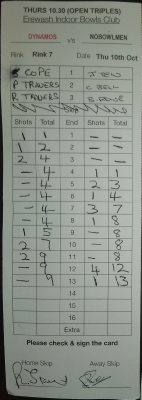 THURS 10.30 (OPEN TRIPLES)
Erewash Indoor Bowls Club
DYNAMOS v's NOBOWLMEN
Rink Rink 7 Date Thu 10th Oct
S COPE 1 J TEW
P TRAVERS 2 C BELL
R TRAVERS 3
Shots Total End Shots Total
1 1 1 - -
1 2 2 - -
2 4 3 - -
- 4 4 1 1
- 4 5 2 3
- 4 6 1 4
- 4 7 3 7
- 4 8 1 8
1 5 9 - 8
2 7 10 - 8
2 9 11 - 8
- 9 12 4 12
- 9 13 1 13
14
15
16
17
18
Extra
Please check & sign the card
Home Skip Away Skip